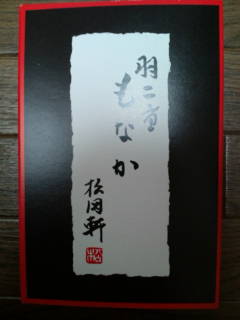 羽二重
もなか
松岡軒